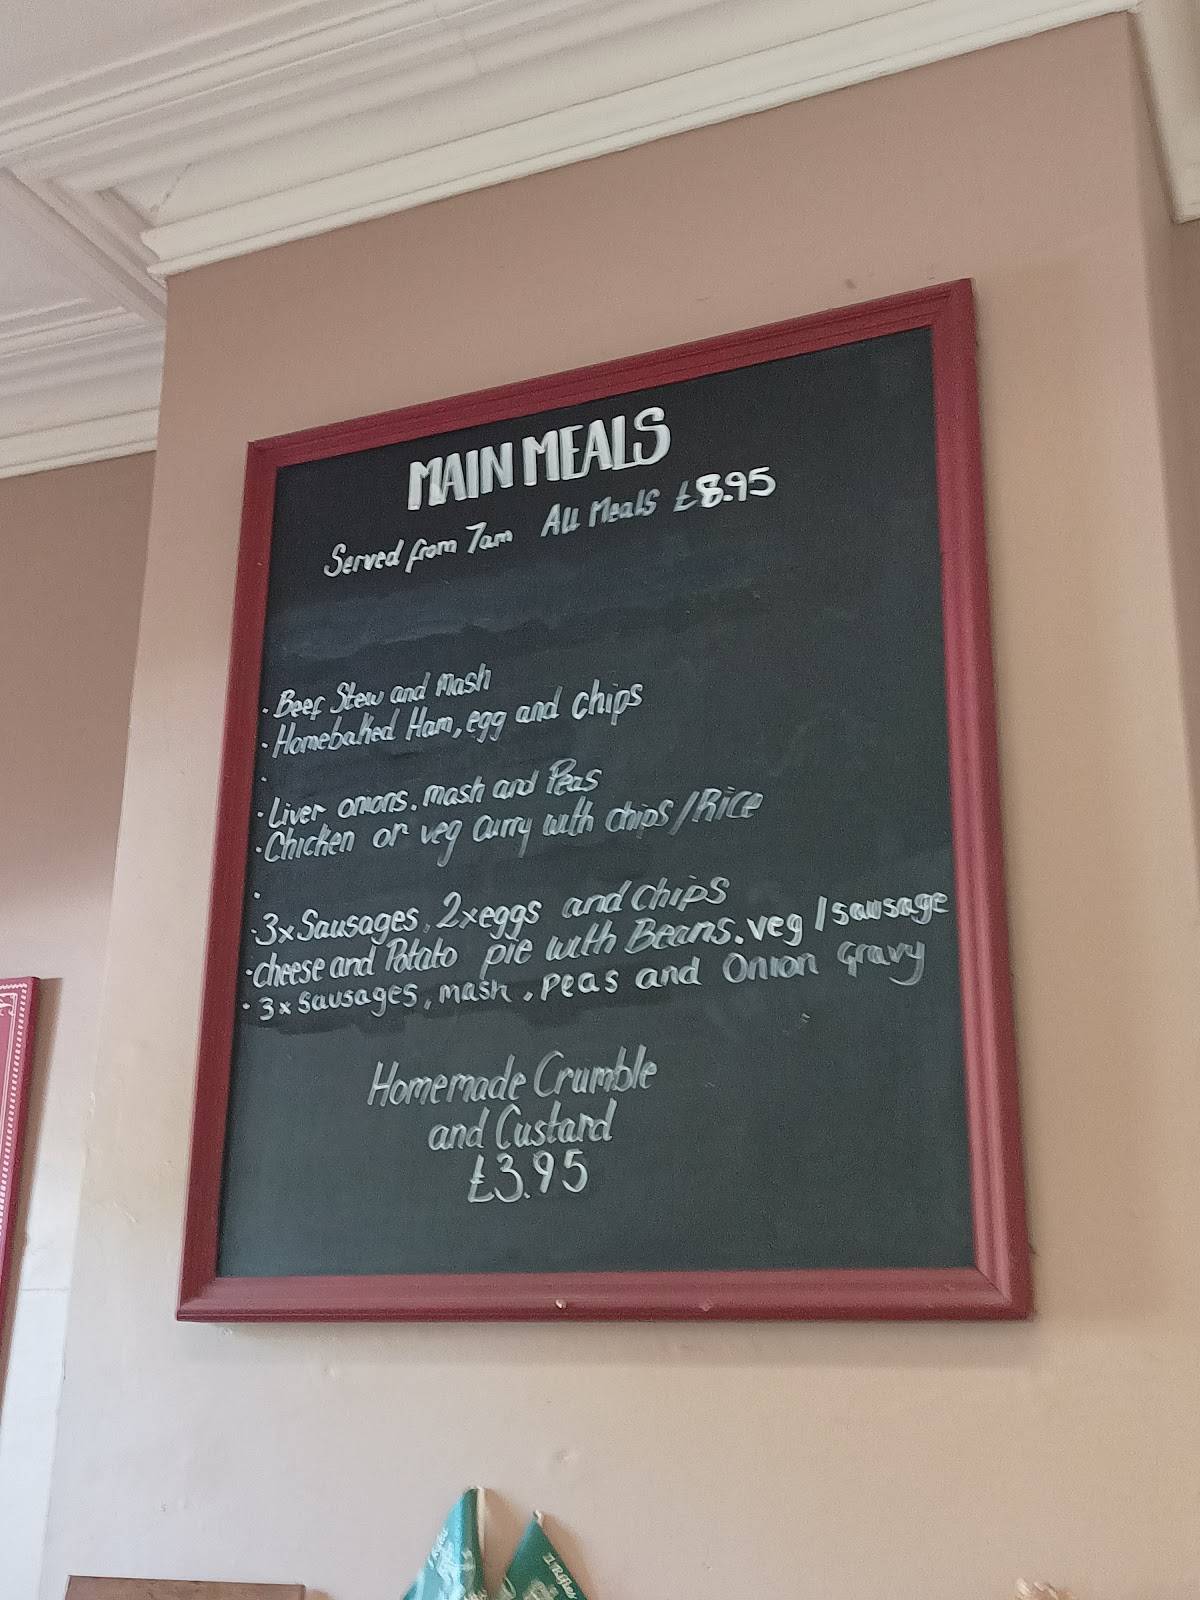 MAIN MEALS
Served from 7am All Meals £8.95
· Beef Stew and Mash
· Homebaked Ham, egg and chips
·
· Liver onions, mash and Peas
· Chicken or veg curry with chips/Rice
·
· 3x Sausages, 2x eggs and chips
· cheese and Potato pie with Beans, veg / sausage
· 3x sausages, mash, peas and Onion gravy
Homemade Crumble
and Custard
£3.95